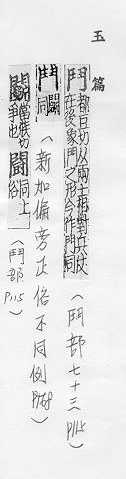 玉篇
鬥 都豆切从兩士相對兵杖
在後象鬥之形今作門同
(鬥部七十三 P115)
鬥 鬭同
(新加偏旁正俗不同例 P768)
鬭 當候切
爭也
鬪 同上
俗
(鬥部 P115)